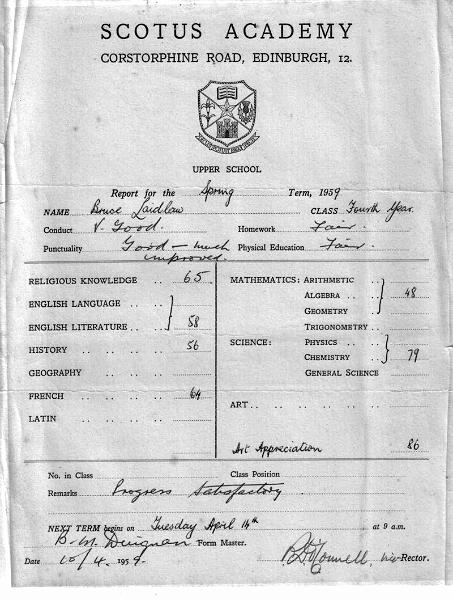 SCOTUS ACADEMY
CORSTORPHINE ROAD, EDINBURGH, 12.
UPPER SCHOOL
Report for the Spring Term, 1959
NAME Bruce Laidlaw CLASS Fourth Year.
Conduct V. Good. Homework Fair.
Punctuality Good – much improved. Physical Education Fair.
RELIGIOUS KNOWLEDGE .. 65
ENGLISH LANGUAGE .. ..
ENGLISH LITERATURE .. .. 58
HISTORY .. .. .. 56
GEOGRAPHY .. .. ..
FRENCH .. .. .. 64
LATIN .. .. ..
MATHEMATICS: ARITHMETIC ..
ALGEBRA .. .. 48
GEOMETRY ..
TRIGONOMETRY ..
SCIENCE: PHYSICS .. ..
CHEMISTRY .. 79
GENERAL SCIENCE
ART .. .. .. .. .. ..
Art Appreciation 86
No. in Class Class Position
Remarks Progress Satisfactory.
NEXT TERM begins on Tuesday April 14th at 9 a.m.
B. M. Duignan Form Master.
Date 10/4. 1959. Rector.